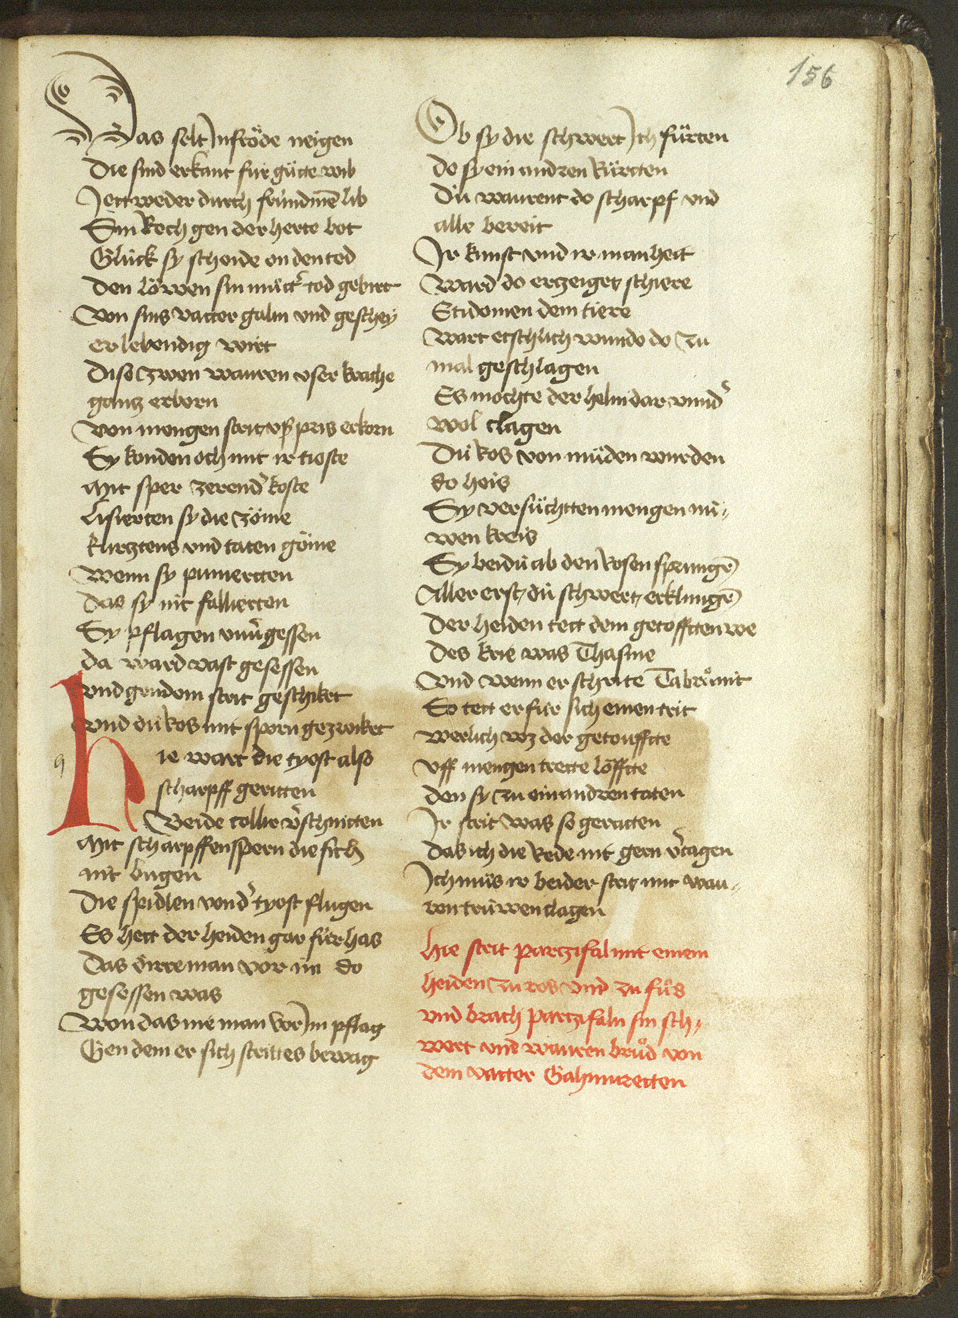 156
Das selt Jnfröde neigen
Die sind erkant fur gütte wib
Jettweder durch frúndinē lib
Sin Rech gen der herte bot
Glúck sy scheide on den tod
Den löwen sin můtt͛ tod gebirt
Von sins vatter galm und geschrey
er lebendig wirt
Dise zwen wauren vser krache
gantz erborn
Von mengen strit vß pris erkorn
Sy konden och mit ir tioste
Mit sper zerend͛ koste
Lisierten sy die zöme
kurtztens vnd taten göme
Wenn sy punierten
das sy nit fallierten
Sy pflagen vnv͛gessen
da ward vast gesessen
vnd gen dem strit geschikt
vnd dú ros mit sporn gezwikt
hie wart die tyost also
scharpff geritten
Beide collir v͛schnitten
Mit scharpffen spern die sich
nit bugen
Die spidlen von d͛ tyost flugen
Es hett der heiden gar fúr has
Das dirre man vor im do
gesessen was
Won das nie man vor Jm pflag
Gen dem er sich strites bewag
Ob sy die schwert Jch fürten
do sy ein andren Rürtten
Dú waurent do scharpf vnd
alle bereit
Jr kunst vnd ir manheit
Ward do erzeiget schiere
Etidomen dem tiere
Wart etschlich wundo do zu
mal geschlagen
Es mochte der helm dar vnnd͛
wol clagen
Dú ros von müden wurden
do heis
Sy versüchtten mengen nú-
wen kreis
Sy beidú ab den Rosen sprungē
Aller erst dú schwert erklungē
Der heiden tett dem getofften we
Des krie was Thasme
Vnd wenn er schrite Tabrůnit
So tett er fúr sich einen trit
werlich wz der getouffte
vff mengen trette löffte
den sy zu ein andren taten
Jr strit was so geratten
Das ich die Rede nit gern v͛tagen
Jch můs ir beider strit mit wau-
ren trúwen clagen
Hie strit partzifal mit einem
heiden zu ros vnd zu fůs
vnd brach partzifaln sin sch-
wert vnd wauren brůd von
dem vatter Gahmuretten